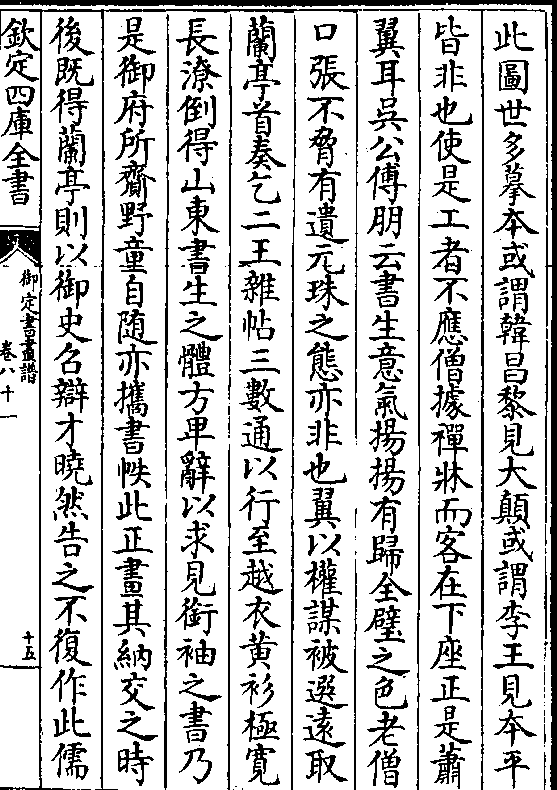 此圖世多摹本或謂韓昌黎見大顛或謂李王見本平
皆非也使是工者不應僧據禪牀而客在下座正是蕭
翼耳吳公傅朋云書生意氣揚揚有歸全璧之色老僧
口張不脅有遺元珠之態亦非也翼以權謀被選遠取
蘭亭首奏乞二王雜帖三數通以行至越衣黄衫極寛
長潦倒得山東書生之體方卑辭以求見銜袖之書乃
是御府所齎野童自随亦攜書帙此正畫其納交之時
後既得蘭亭則以御史召辯才曉然告之不復作此儒
欽定四庫全書
御定書畫譜
卷八十一
十五